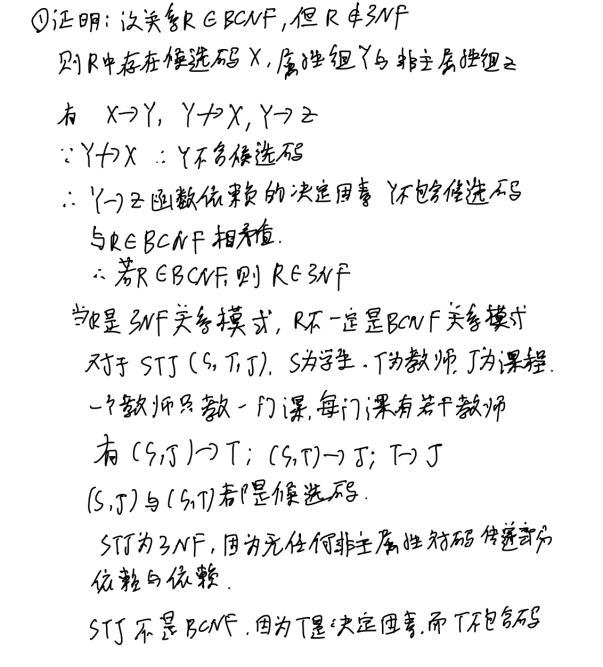 ①证明：设关系R∈BCNF，但R∉3NF
则R中存在候选码X，属性组Y与非主属性组Z
有 X→Y，Y↛X，Y→Z
∵Y↛X ∴Y不含候选码
∴Y→Z函数依赖的决定因素Y不包含候选码
与R∈BCNF相矛盾.
∴若R∈BCNF，则R∈3NF
当R是3NF关系模式，R不一定是BCNF关系模式
对于STJ（S,T,J），S为学生，T为教师，J为课程.
一个教师只教一门课，每门课有若干教师
有（S,J）→T；（S,T）→J；T→J
（S,J）与（S,T）都是候选码.
STJ为3NF，因为无任何非主属性对码传递部分
依赖与依赖.
STJ不是BCNF，因为T是决定因素，而T不包含码